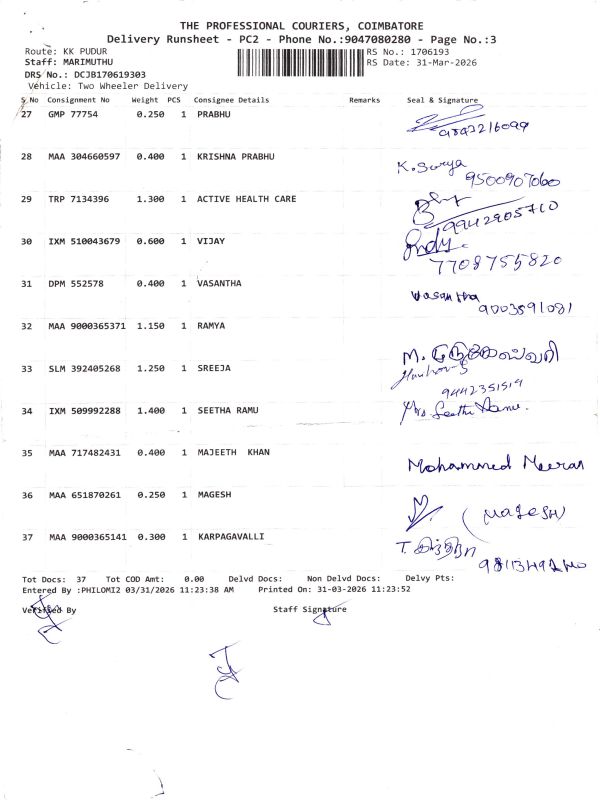 THE PROFESSIONAL COURIERS, COIMBATORE
Delivery Runsheet - PC2 - Phone No.:9047080280 - Page No.:3
Route: KK PUDUR RS No.: 1706193
Staff: MARIMUTHU RS Date: 31-Mar-2026
DRS No.: DCJB170619303
Vehicle: Two Wheeler Delivery
S.No Consignment No Weight PCS Consignee Details Remarks Seal & Signature
27 GMP 77754 0.250 1 PRABHU
9843216099
28 MAA 304660597 0.400 1 KRISHNA PRABHU
K. Surya
9500907060
29 TRP 7134396 1.300 1 ACTIVE HEALTH CARE
9942905710
30 IXM 510043679 0.600 1 VIJAY
7708755820
31 DPM 552578 0.400 1 VASANTHA
Vasantha
9003891081
32 MAA 9000365371 1.150 1 RAMYA
33 SLM 392405268 1.250 1 SREEJA
9442351519
34 IXM 509992288 1.400 1 SEETHA RAMU
Mrs Seetha Ramu.
35 MAA 717482431 0.400 1 MAJEETH KHAN
Mohammed Meeran
36 MAA 651870261 0.250 1 MAGESH
(MAGESH)
37 MAA 9000365141 0.300 1 KARPAGAVALLI
Tot Docs: 37 Tot COD Amt: 0.00 Delvd Docs: Non Delvd Docs: Delvy Pts:
Entered By :PHILOMI2 03/31/2026 11:23:38 AM Printed On: 31-03-2026 11:23:52
Verified By Staff Signature